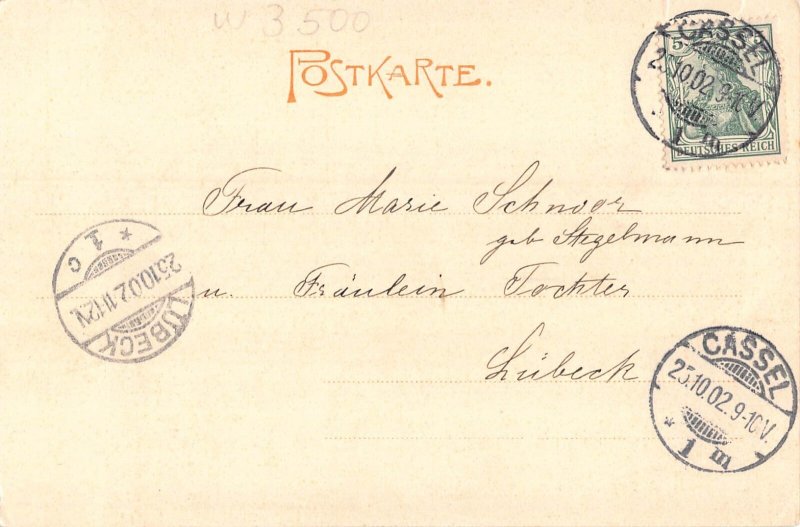 W 3500
POSTKARTE.
5
DEUTSCHES REICH
CASSEL
25.10.02.9-10V.
1 m
Frau Marie Schnoor
geb Stegelmann
u. Fräulein Tochter
Lübeck
LÜBECK
25.10.02.11-12N
* 1 c
CASSEL
25.10.02.9-10V.
* 1 m